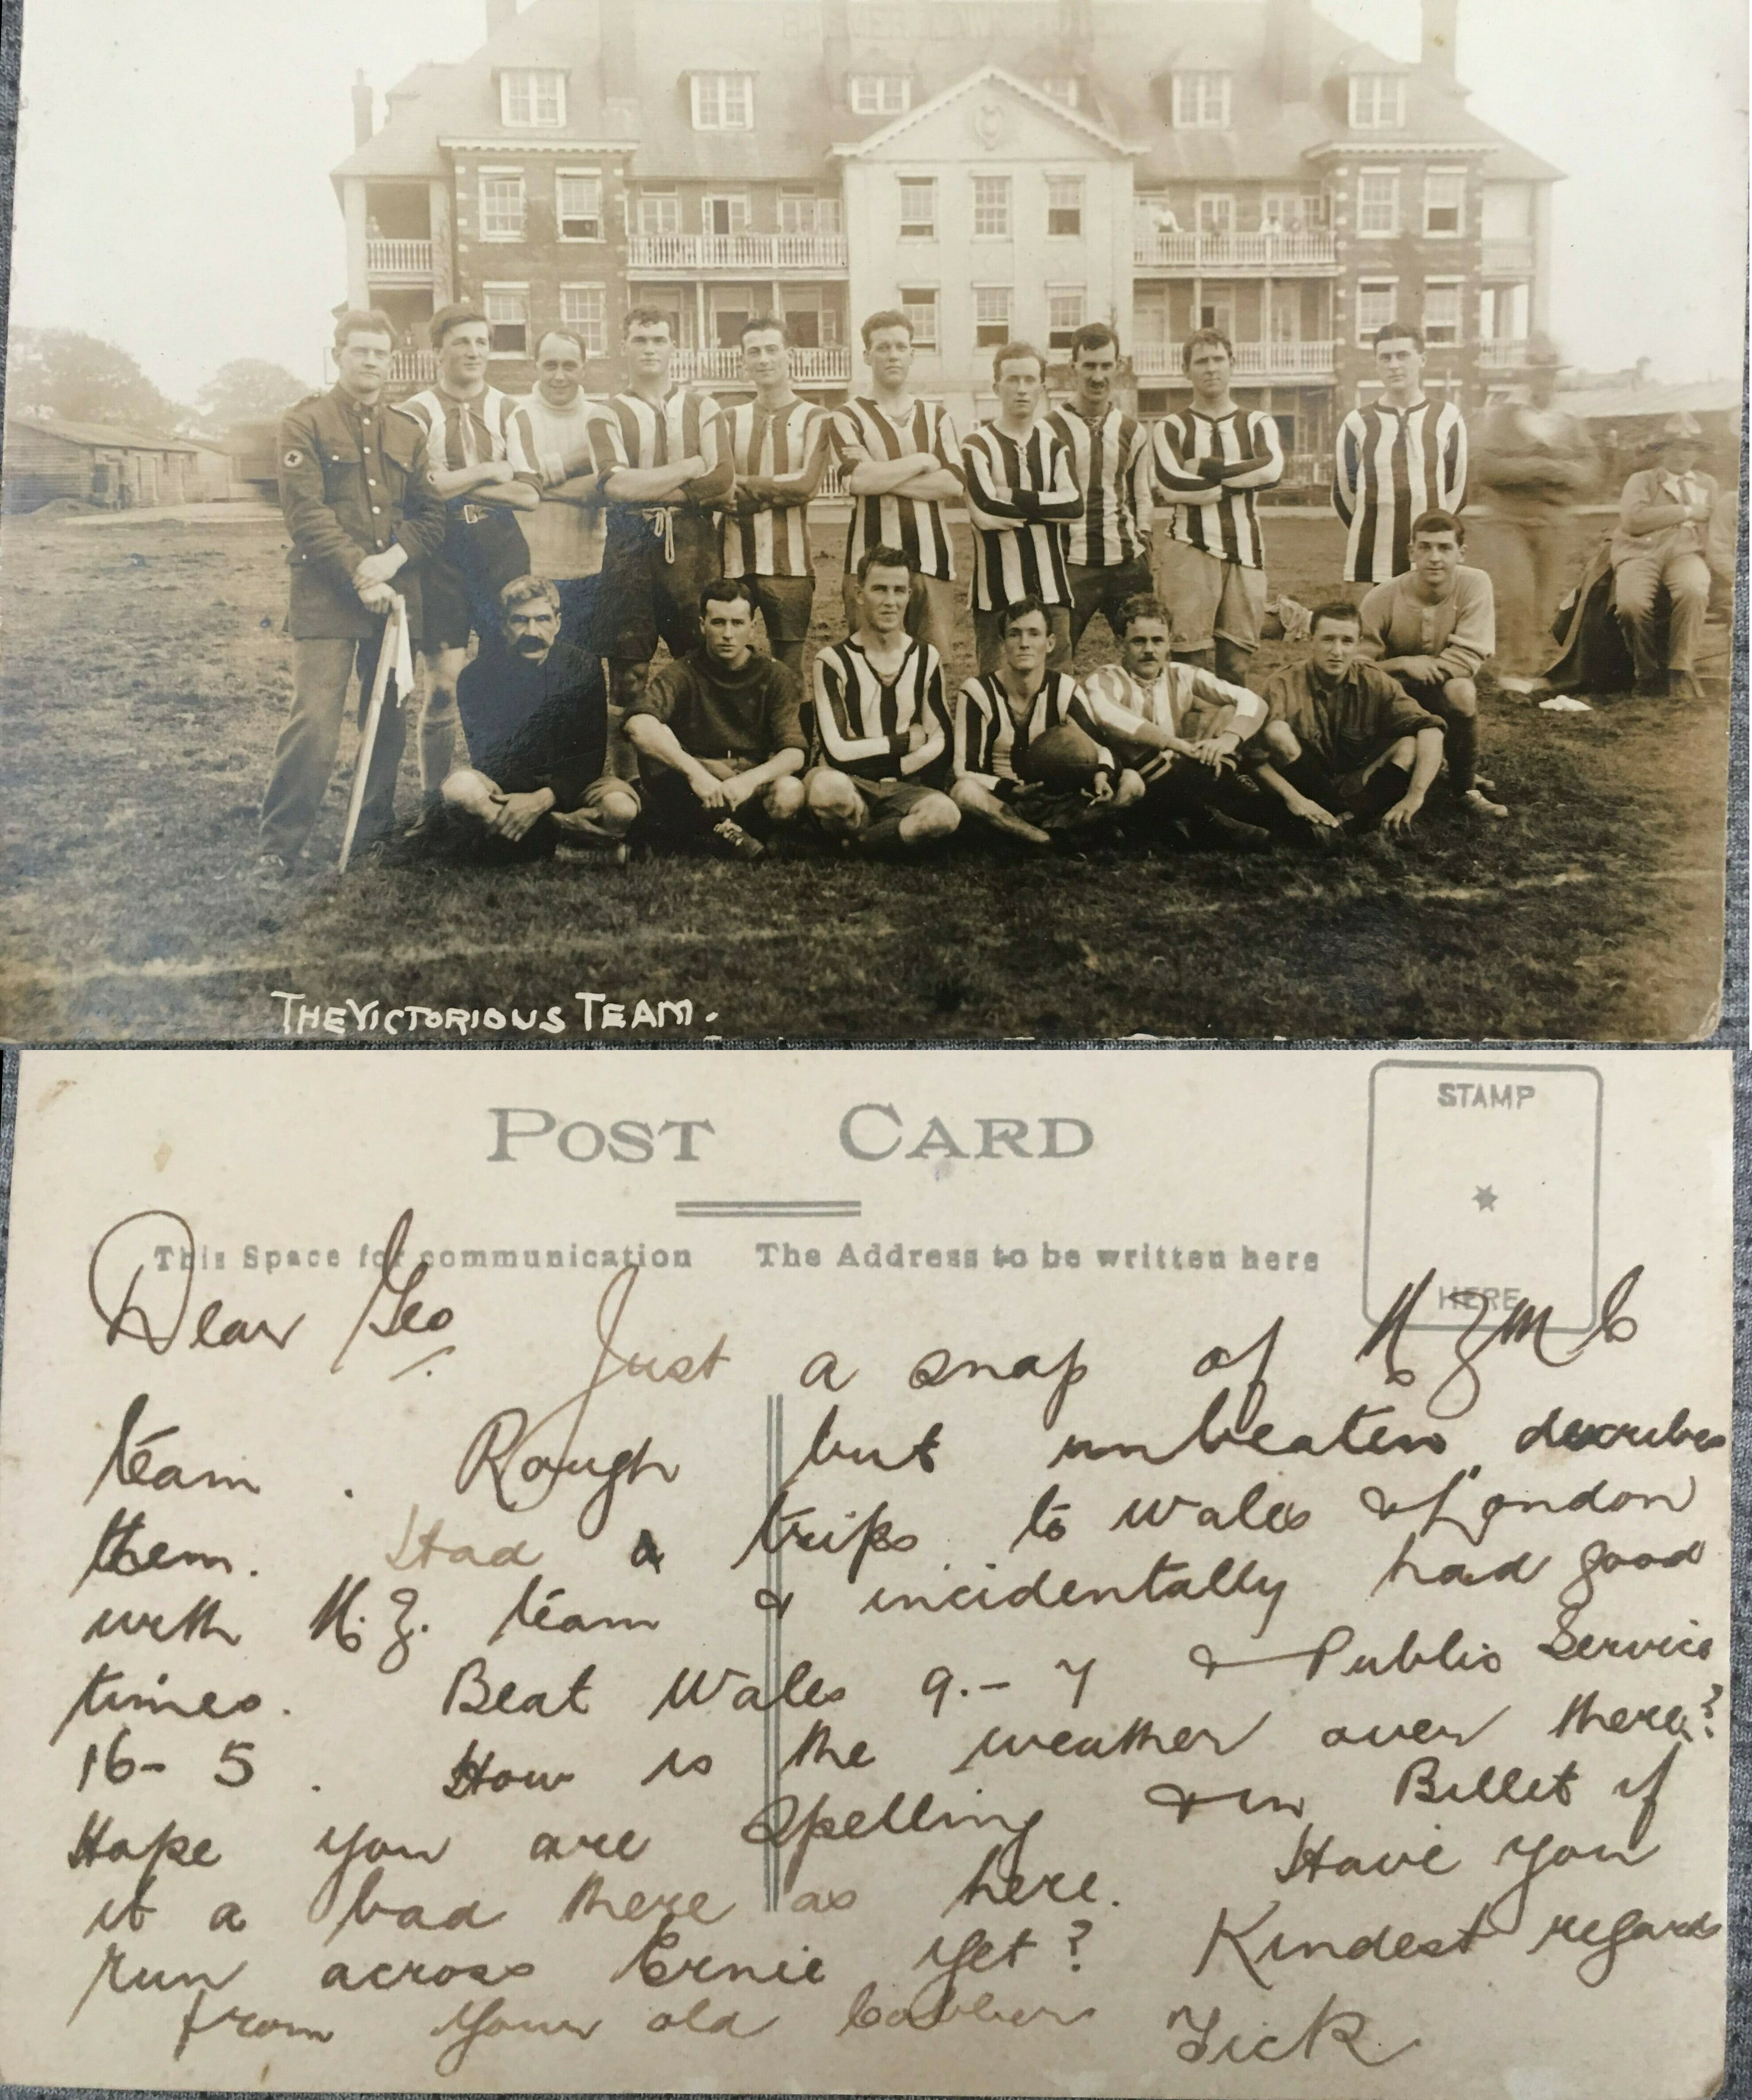 THE VICTORIOUS TEAM.
POST CARD
STAMP
HERE
This Space for communication
The Address to be written here
Dear Geo
Just a snap of N Z M C
team. Rough but unbeaten describes
them. Had a trips to Wales & London
with N.Z. team & incidentally had good
times. Beat Wales 9.-7 & Public Service
16-5. How is the weather over there?
Hope you are Spelling & in Billet if
it a bad there as here. Have you
run across Ernie yet? Kindest regards
from your old cobber